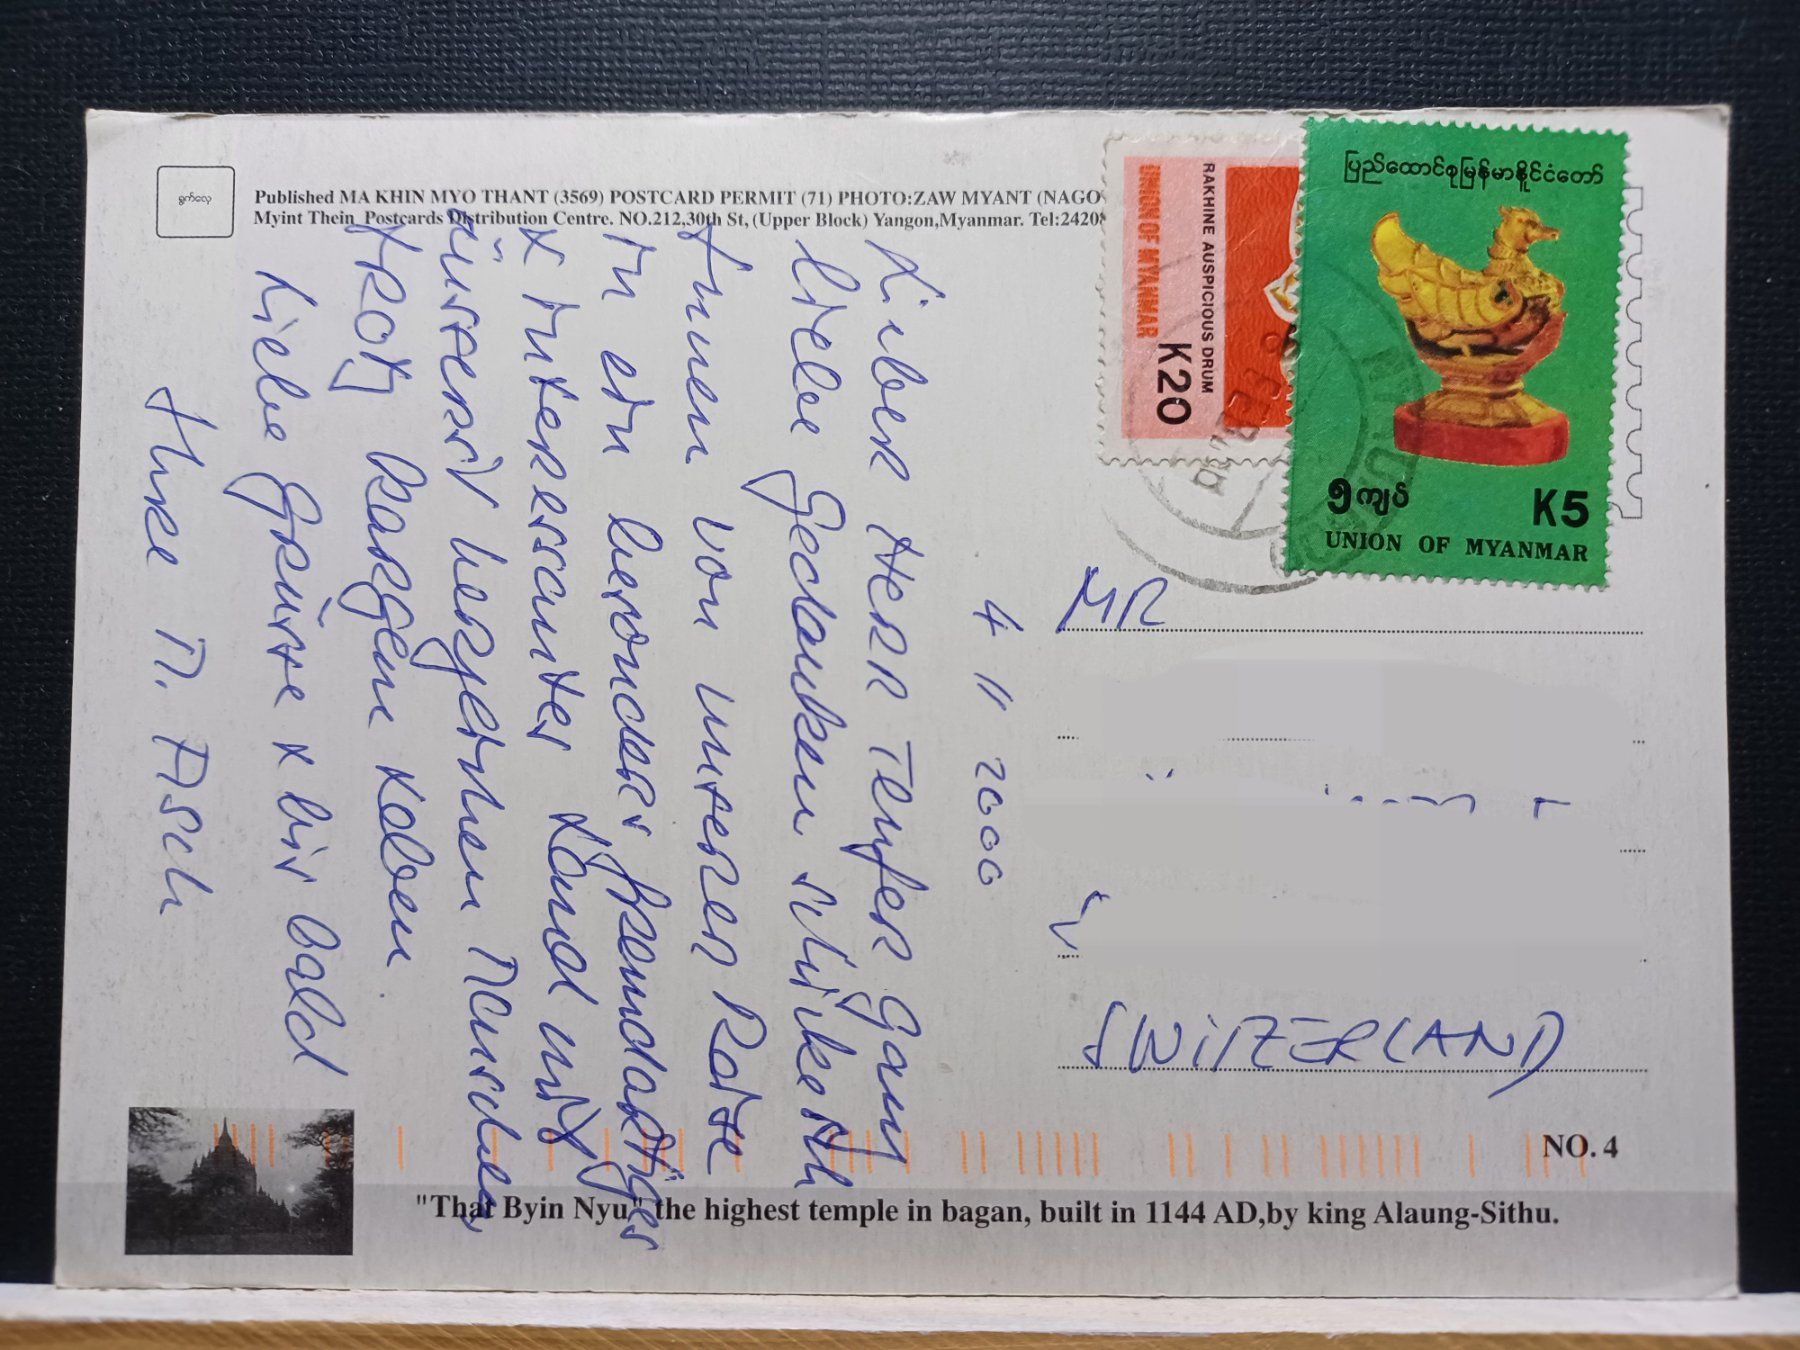 ရွက်လှေ
Published MA KHIN MYO THANT (3569) POSTCARD PERMIT (71) PHOTO:ZAW MYANT (NAGO
Myint Thein Postcards Distribution Centre. NO.212,30th St, (Upper Block) Yangon,Myanmar. Tel:2420
UNION OF MYANMAR
RAKHINE AUSPICIOUS DRUM
K20
ပြည်ထောင်စုမြန်မာနိုင်ငံတော်
၅ကျပ် K5
UNION OF MYANMAR
4 11 2000
Lieber Herr Tenfer Ganz
liebe Gedanken schicke ich
Ihnen von unserer Reise
in ein besonders fremdartiges
& interessantes Land mit
äusserst herzlichen Menschen
trotz kargem Leben.
Liebe Grüsse & bis bald
Ihre M. Asch
MR
SWITZERLAND
NO. 4
"That Byin Nyu" the highest temple in bagan, built in 1144 AD,by king Alaung-Sithu.